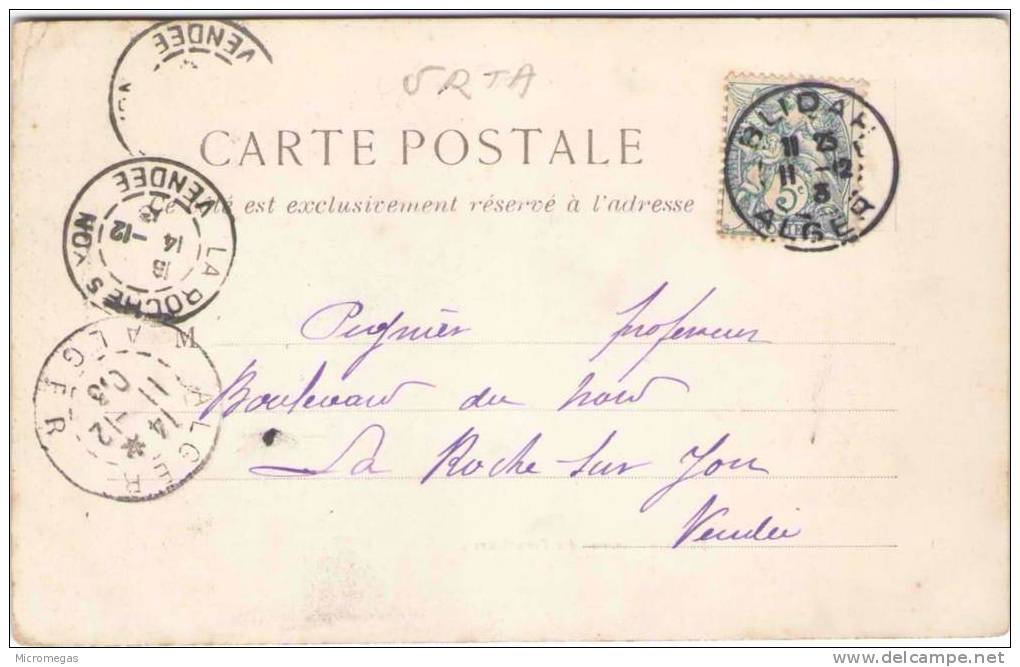 VENDEE
ORTA
CARTE POSTALE
Ce côté est exclusivement réservé à l'adresse
BLIDAH
11 25
11 -12
3
ALGER
5c
LA ROCHE S YON
VENDEE
14 -12
M Pugnier professeur
Boulevard du Nord
La Roche-sur Yon
Vendée
ALGER
14 * 12
11 03
ALGER
Micromegas
www.delcampe.net